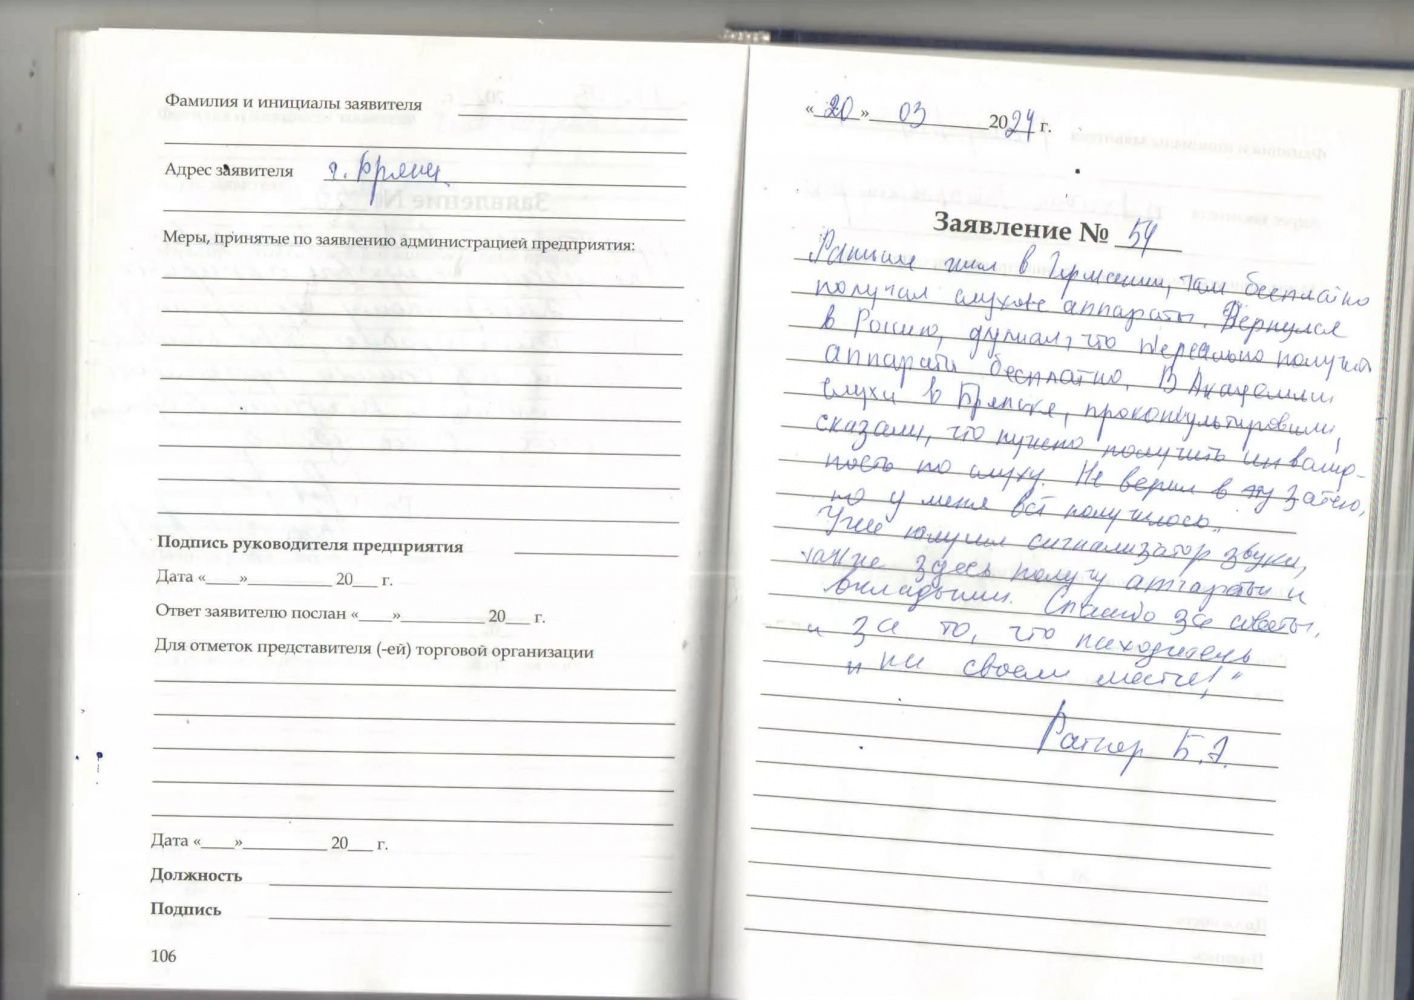 Фамилия и инициалы заявителя
Адрес заявителя г. Брянск
Меры, принятые по заявлению администрацией предприятия:
Подпись руководителя предприятия
Дата «____»__________ 20___ г.
Ответ заявителю послан «____»__________ 20___ г.
Для отметок представителя (-ей) торговой организации
Дата «____»__________ 20___ г.
Должность
Подпись
106
«20» 03 2024 г.
Заявление № 54
Раньше жил в Германии, там бесплатно
получал слуховые аппараты. Вернулся
в Россию, думал, что нереально получить
аппараты бесплатно. В Академии
слуха в Брянске, проконсультировали,
сказали, что нужно получить инвалид-
ность по слуху. Не верил в эту затею,
но у меня всё получилось.
Уже получил сигнализатор звука,
также здесь получу аппараты и
вкладыши. Спасибо за советы,
и за то, что находитесь
на своем месте!"
Ратнер Б.